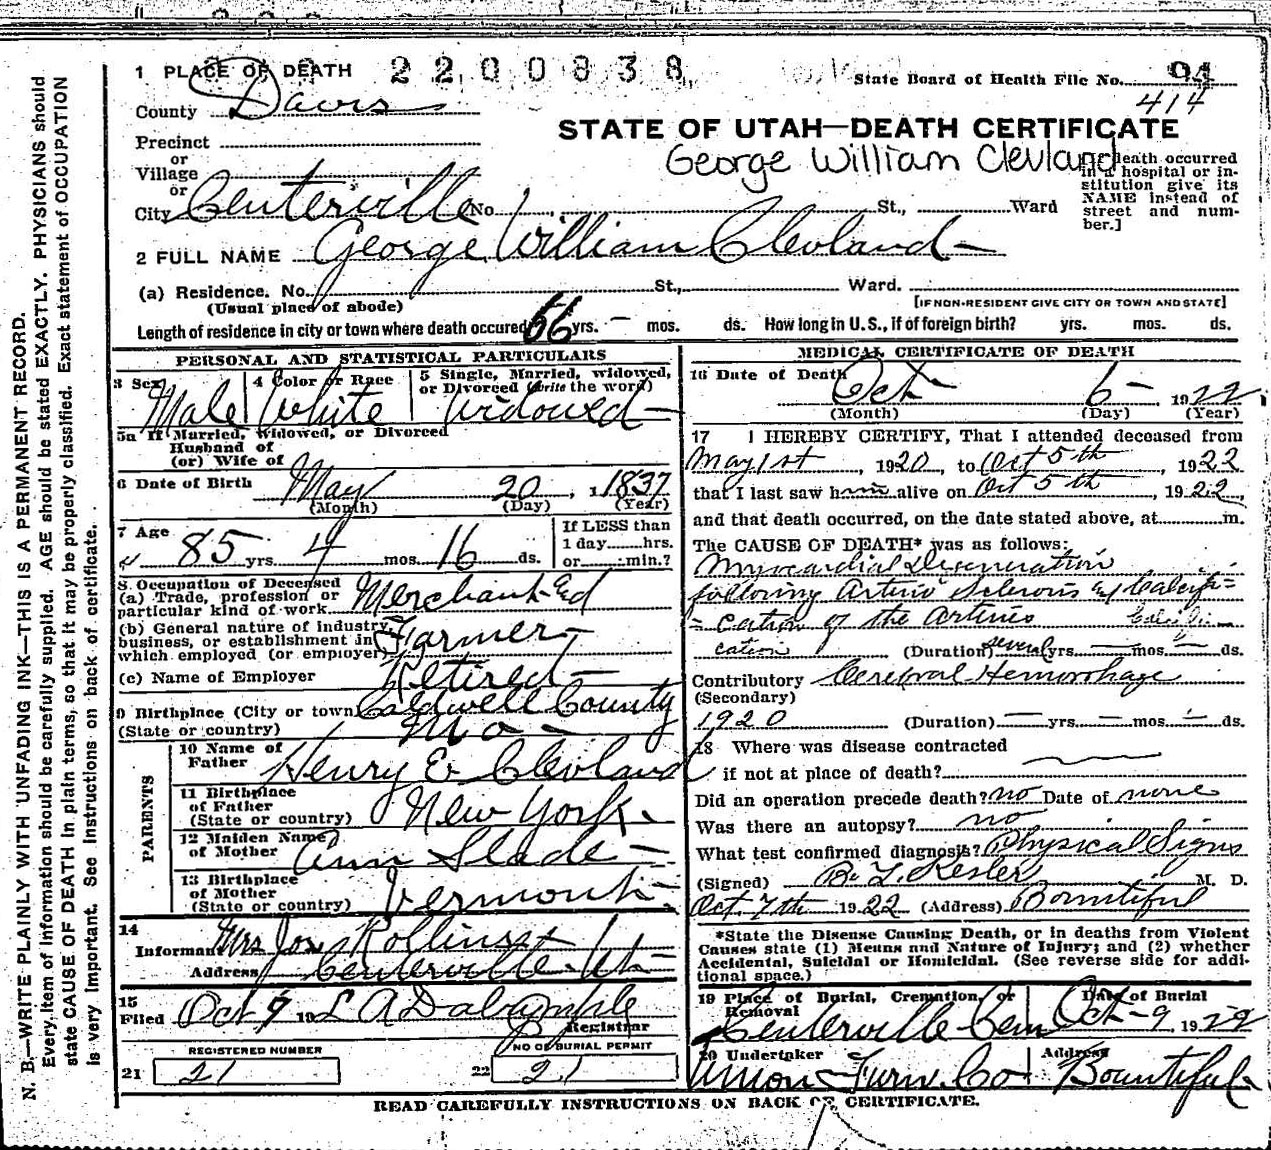 1 PLACE OF DEATH 2200838
State Board of Health File No. 94
414
County Davis
STATE OF UTAH—DEATH CERTIFICATE
George William Clevland
Precinct
or
Village
or
City Centerville No. St., Ward
death occurred in a hospital or institution give its NAME instead of street and number.]
2 FULL NAME George William Clevland
(a) Residence. No. St., Ward.
(Usual place of abode)
[IF NON-RESIDENT GIVE CITY OR TOWN AND STATE]
Length of residence in city or town where death occured 66 yrs. — mos. ds. How long in U. S., if of foreign birth? yrs. mos. ds.
PERSONAL AND STATISTICAL PARTICULARS
3 Sex Male
4 Color or Race White
5 Single, Married, Widowed, or Divorced (write the word) Widowed
5a If Married, Widowed, or Divorced
Husband of
(or) Wife of
6 Date of Birth May 20, 1837
(Month) (Day) (Year)
7 Age 85 yrs 4 mos. 16 ds.
If LESS than
1 day hrs.
or min.?
8. Occupation of Deceased
(a) Trade, profession or particular kind of work Merchant Ed
(b) General nature of industry, business, or establishment in which employed (or employer) Farmer
(c) Name of Employer Retired
9 Birthplace (City or town) Caldwell County
(State or country) Mo
PARENTS
10 Name of Father Henry E Clevland
11 Birthplace of Father (State or country) New York
12 Maiden Name of Mother Ann Slade
13 Birthplace of Mother (State or country) Vermont
14
Informant Mrs Jos Rollins
Address Centerville Ut
15
Filed Oct 9 19 L A Dalrymple
Registrar
REGISTERED NUMBER
21 21
NO OF BURIAL PERMIT
22 21
MEDICAL CERTIFICATE OF DEATH
16 Date of Death Oct 6 1922
(Month) (Day) (Year)
17 I HEREBY CERTIFY, That I attended deceased from
May 1st, 1920, to Oct 5th, 1922
that I last saw him alive on Oct 5th, 1922,
and that death occurred, on the date stated above, at m.
The CAUSE OF DEATH* was as follows:
Myocardial Degeneration
following Arterio Sclerosis and Calcifi=
=cation of the arteries
cation (Duration) several yrs. — mos. — ds.
Contributory Cerebral Hemorrhage
(Secondary)
1920 (Duration) — yrs. — mos. — ds.
18 Where was disease contracted
if not at place of death?
Did an operation precede death? no Date of none
Was there an autopsy? no
What test confirmed diagnosis? Physical Signs
(Signed) B. L. Kesler M. D.
Oct. 7th 1922 (Address) Bountiful
*State the Disease Causing Death, or in deaths from Violent
Causes state (1) Means and Nature of Injury; and (2) whether
Accidental, Suicidal or Homicidal. (See reverse side for additional space.)
19 Place of Burial, Cremation, or Removal Centerville Cem
Date of Burial Oct-9 1922
20 Undertaker Union Furn. Co
Address Bountiful
READ CAREFULLY INSTRUCTIONS ON BACK OF CERTIFICATE.
N. B.—WRITE PLAINLY WITH UNFADING INK—THIS IS A PERMANENT RECORD.
Every item of information should be carefully supplied. AGE should be stated EXACTLY. PHYSICIANS should
state CAUSE OF DEATH in plain terms, so that it may be properly classified. Exact statement of OCCUPATION
is very important. See instructions on back of certificate.